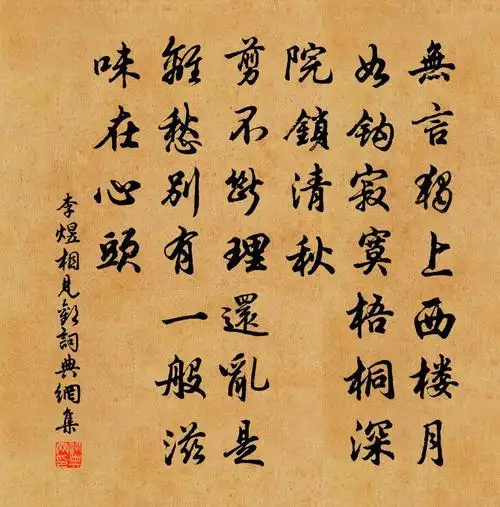 無言獨上西楼月
如鈎寂寞梧桐深
院鎖清秋
剪不斷理還亂是
離愁別有一般滋
味在心頭
李煜相見歡詞典網集